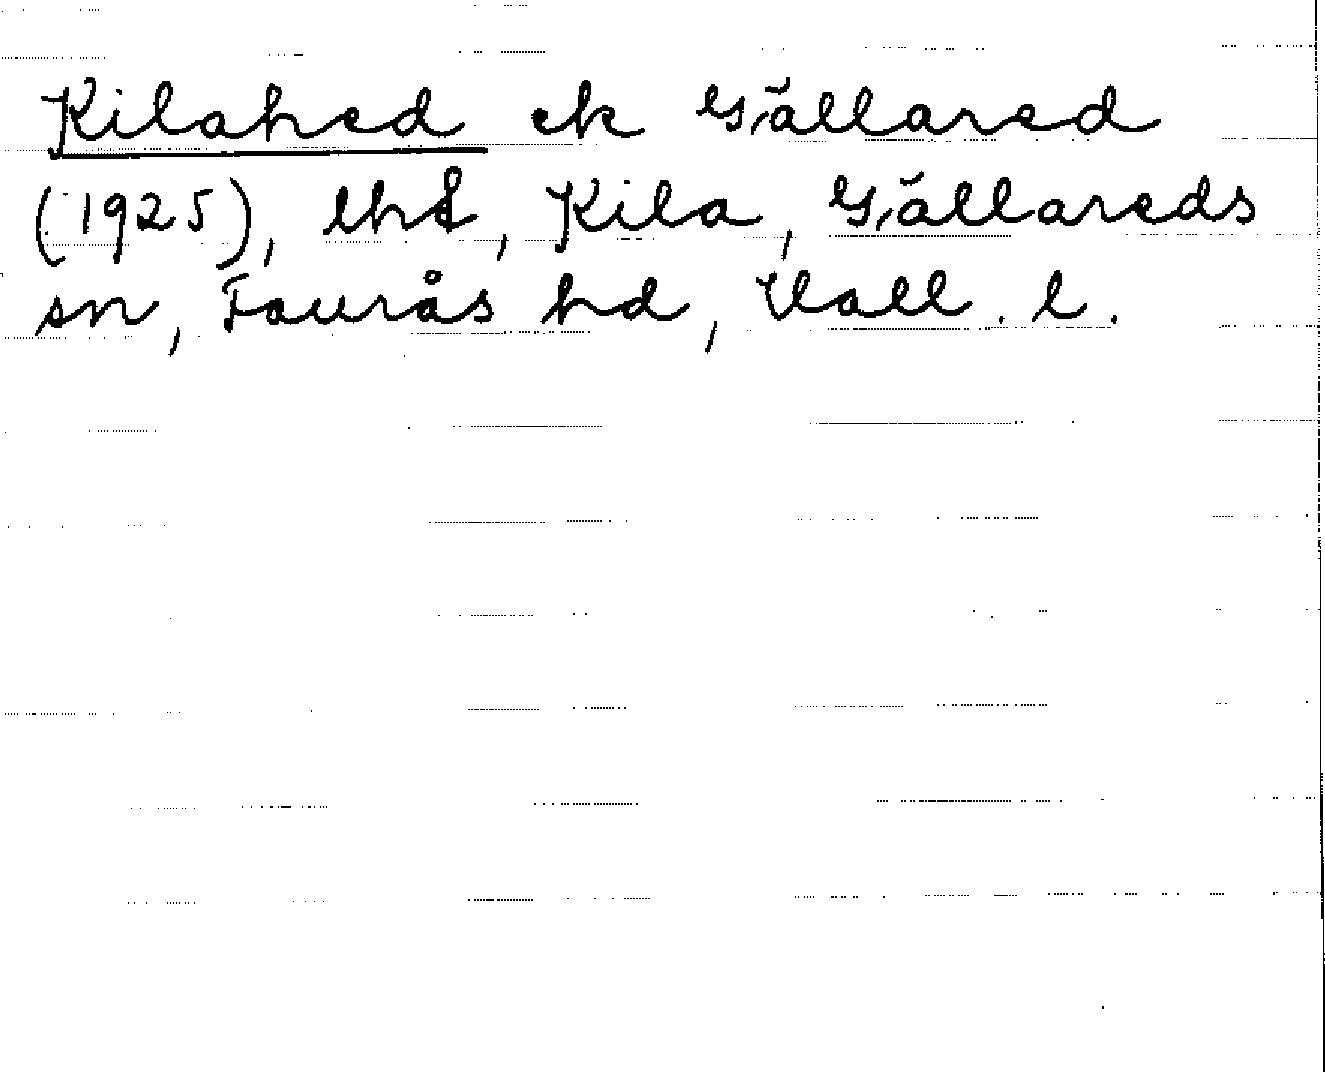 Kilahed ek Gällared
(1925), lht, Kila, Gällareds
sn, Faurås hd, Hall. l.